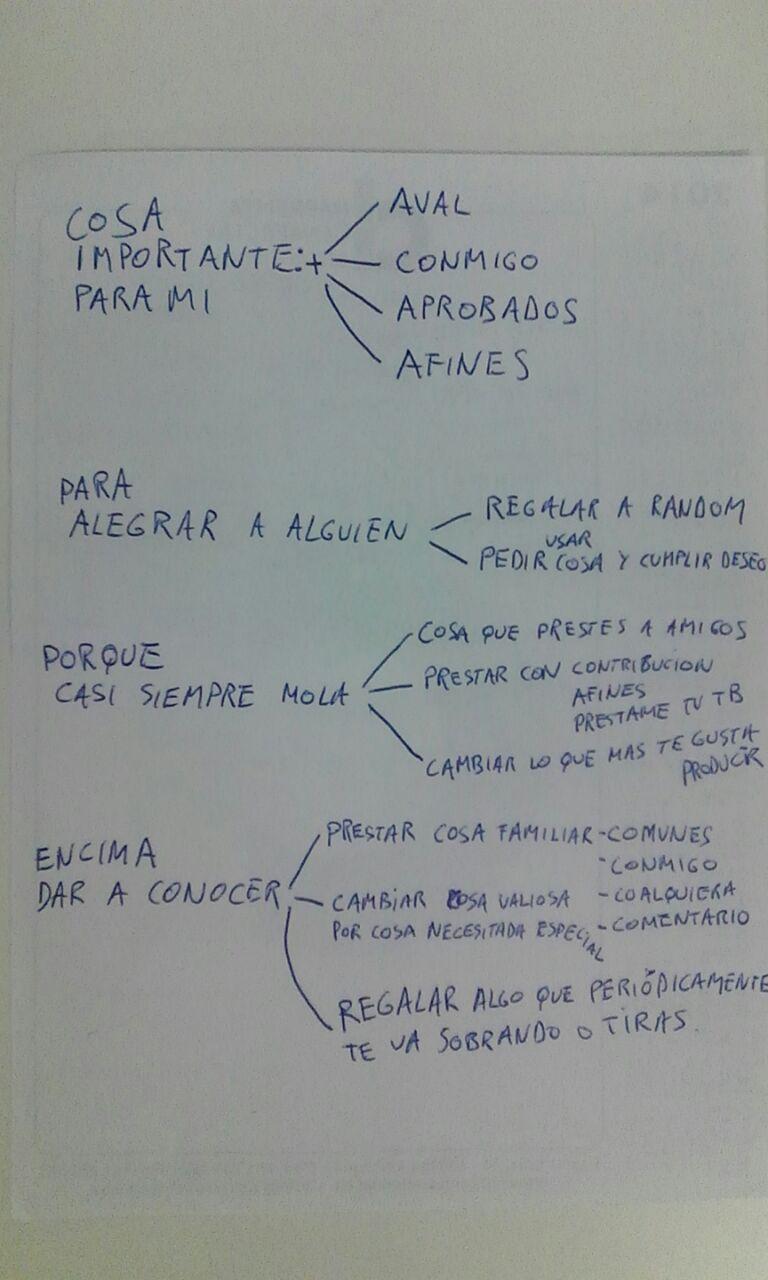 COSA
IMPORTANTE:+
PARA MI
AVAL
CONMIGO
APROBADOS
AFINES
PARA
ALEGRAR A ALGUIEN
REGALAR A RANDOM
USAR
PEDIR COSA Y CUMPLIR DESEO
PORQUE
CASI SIEMPRE MOLA
COSA QUE PRESTES A AMIGOS
PRESTAR CON CONTRIBUCION
AFINES
PRESTAME TU TB
CAMBIAR LO QUE MAS TE GUSTA
PRODUCIR
ENCIMA
DAR A CONOCER
PRESTAR COSA FAMILIAR -COMUNES
-CONMIGO
CAMBIAR COSA VALIOSA -COALQUIERA
POR COSA NECESITADA ESPECIAL -COMENTARIO
REGALAR ALGO QUE PERIÓDICAMENTE
TE VA SOBRANDO O TIRAS.